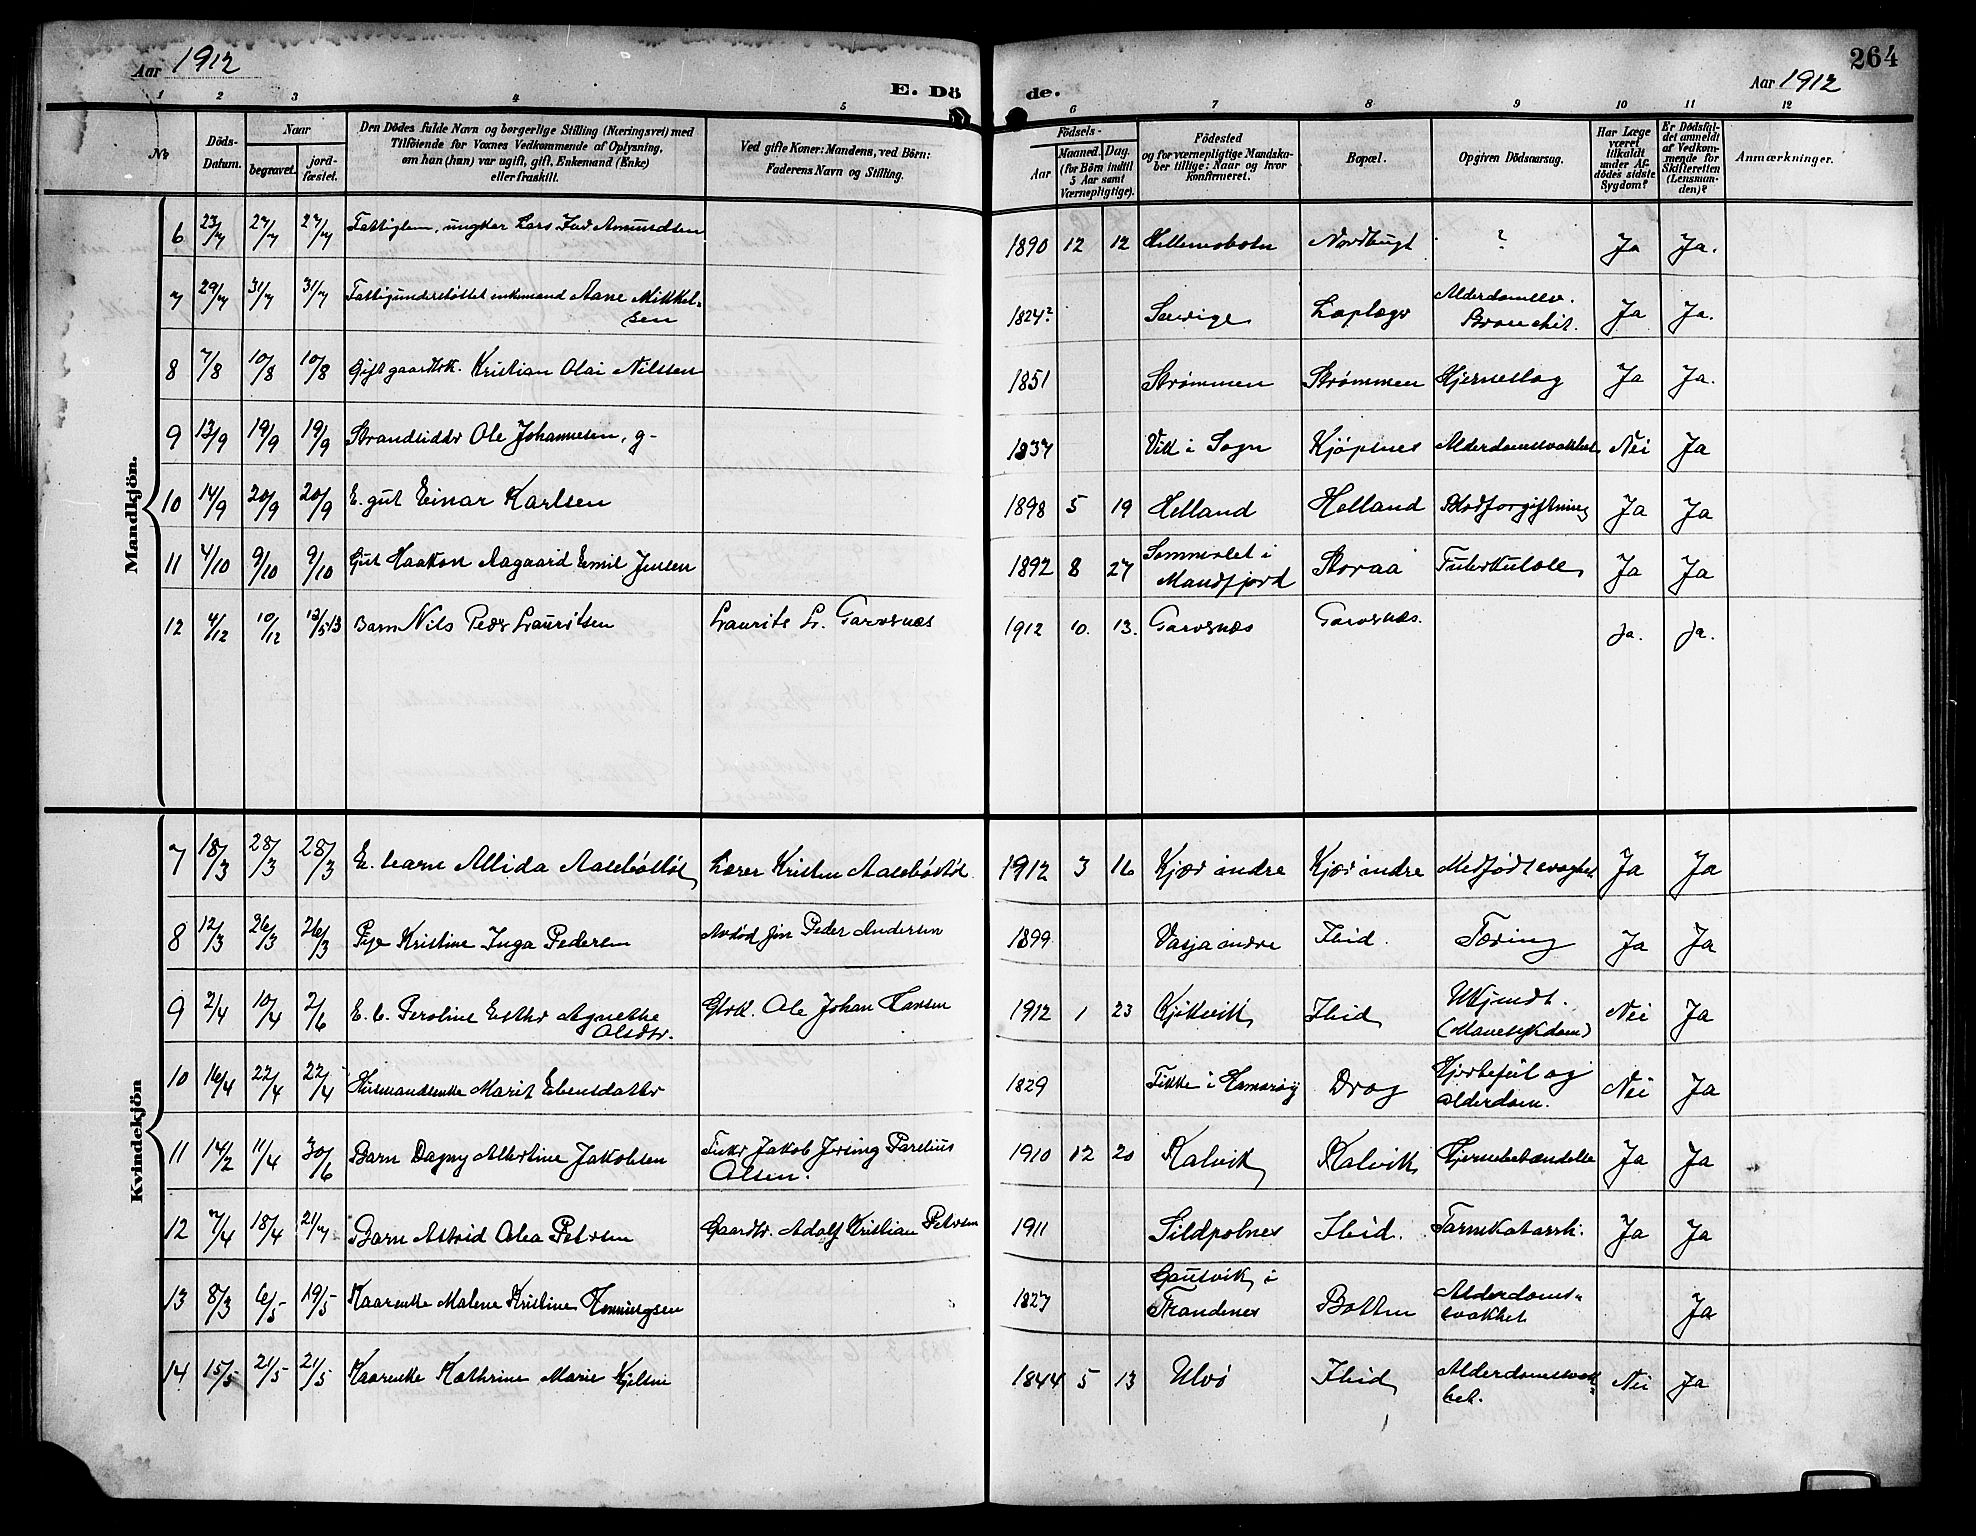 264
Aar 1912
E. Dö de.
Aar 1912
1 2 3 4 5 6 7 8 9 10 11 12
No
Döds-Datum.
Naar
begravet.
jord-fæstet.
Den Dödes fulde Navn og borgerlige Stilling (Næringsvei) med
Tilföiende for Voxnes Vedkommende af Oplysning,
om han (hun) var ugift, gift, Enkemand (Enke)
eller fraskilt.
Ved gifte Koner: Mandens, ved Börn:
Faderens Navn og Stilling.
Födsels-
Aar
Maaned. Dag.
(for Börn indtil
5 Aar samt
Værnepligtige).
Födested
og for værnepligtige Mandska-
ber tillige: Naar og hvor
konfirmeret.
Bopæl.
Opgiven Dödsaarsag.
Har Læge
været
tilkaldt
under Af-
dödes sidste
Sygdom?
Er Dödsfal-
det anmeldt
af Vedkom-
mende for
Skifteretten
(Lensman-
den)?
Anmærkninger.
Mandkjön.
6 23/7 27/7 27/7 Fattiglem, ungkar Lars Amundsen 1890 12 12 Hellemobotn Nordbugt ? Ja Ja.
7 29/7 31/7 31/7 Fattigunderstøttet enkemand Aane Mikkel-
sen 1824? Sverige Laplæger Alderdomssv.
Bronchit. Ja Ja.
8 7/8 10/8 10/8 Gift gaardbr. Kristian Olai Nilssen 1851 Strømmen Strømmen Hjerneslag Ja Ja.
9 13/9 19/9 19/9 Strandsidder Ole Johannesen, g- 1837 Vik i Sogn Kjöpsnes Alderdomssvakhet Nei Ja
10 14/9 20/9 20/9 E. gut Einar Karlsen 1898 5 19 Helland Helland Blodforgiftning Ja Ja
11 4/10 9/10 9/10 Gut Haakon Aagaard Emil Jensen 1892 8 27 Sommerset i
Mandfjord Storaa Tuberkulose Ja Ja
12 4/12 10/12 12/5 13 Barn Nils Peder Lauritsen Laurits L. Garvsnæs 1912 10. 13. Garvsnæs Garvsnæs. Ja. Ja.
Kvindekjön
7 18/3 28/3 28/3 E. barn Allida Aasebøstøl Lærer Kristen Aasebøstøl. 1912 3 16 Kjær indre Kjær indre Medfødt svaghet Ja Ja
8 12/3 26/3 26/3 Pige Kristine Inga Pedersen Avdød Peder Andersen 1899 Vasja indre Ibid. Tæring Ja Ja
9 2/4 10/4 2/6 E. b. Peroline Esther Agnethe
Olsdtr. Gbrk. Ole Johan Hansen 1912 1 23 Kjikvik Ibid Ukjendt.
(Mavesykdom) Nei Ja
10 16/4 22/4 22/4 Husmandsenke Marit Ebensdatter 1829 Tikke i Hamarøy Drag Hjertefeil og
alderdom. Nei Ja
11 14/2 11/4 30/6 Barn Dagny Albertine Jakobsen Fisker Jakob Jering Parelius
Olsen. 1910 12 20 Kalvik Kalvik Hjernebetændelse Ja Ja
12 7/4 18/4 21/7 Barn Astrid Olea Petersen Gaardbr. Adolf Kristian Petersen 1911 Sildpolnes Ibid. Tarmkatarrh. Ja Ja
13 8/3 6/5 19/5 Kaarenke Malene Kristine Henningsen 1827 Gausvik i
Trandenes Botten Alderdoms-
svakhet Ja
14 15/5 21/5 21/5 Kaarenke Kathrine Marie Kjelsen 1844 5 13 Ulvø Ibid Alderdomssvak-
het. Nei Ja